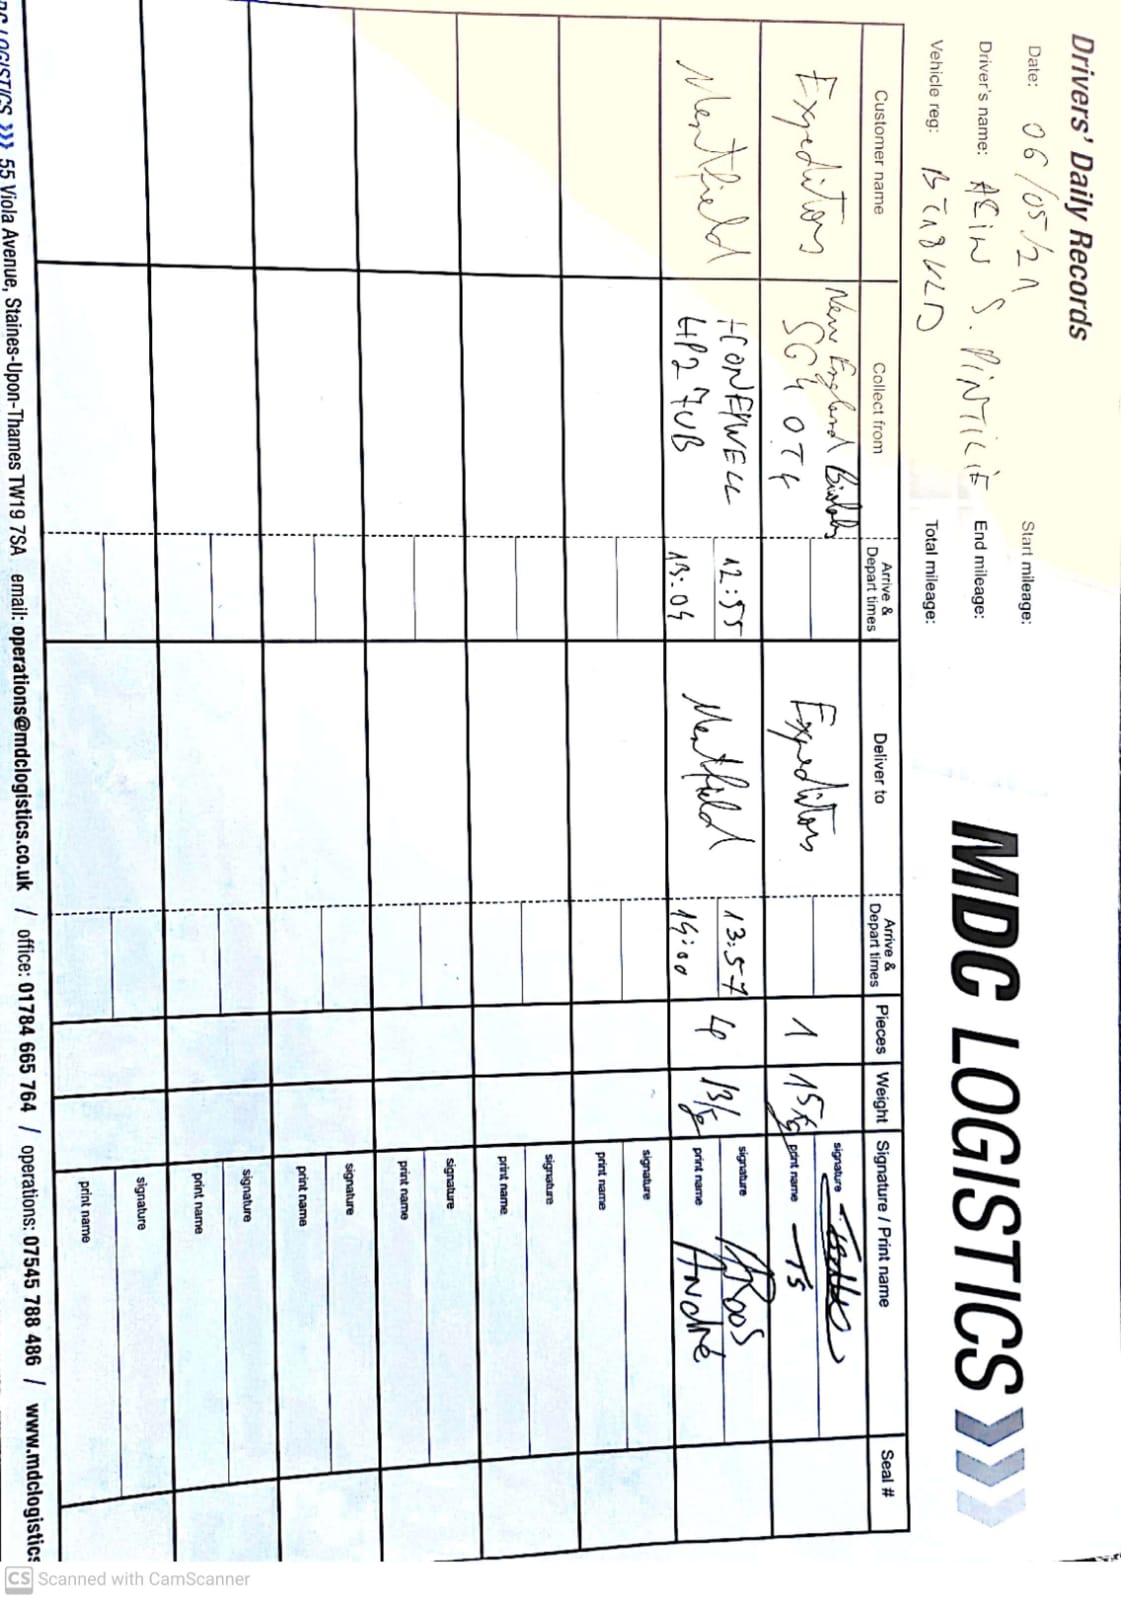 Drivers' Daily Records
MDC LOGISTICS
Date: 06/05/21
Start mileage:
Driver's name: S. PINTILIE
End mileage:
Vehicle reg:
Total mileage:
Customer name Collect from Arrive & Depart times Deliver to Arrive & Depart times Pieces Weight Signature / Print name Seal #
Expeditors New England Biolabs Expeditors 1 15kg signature
SG4 0TY print name TS
Mentfield 12:55 Mentfield 13:57 4 13kg signature Roos
HP2 7UB 13:04 14:00 print name André
signature
print name
signature
print name
signature
print name
signature
print name
signature
print name
signature
print name
LOGISTICS 55 Viola Avenue, Staines-Upon-Thames TW19 7SA email: operations@mdclogistics.co.uk / office: 01784 665 764 / operations: 07545 788 486 / www.mdclogistics
CS Scanned with CamScanner